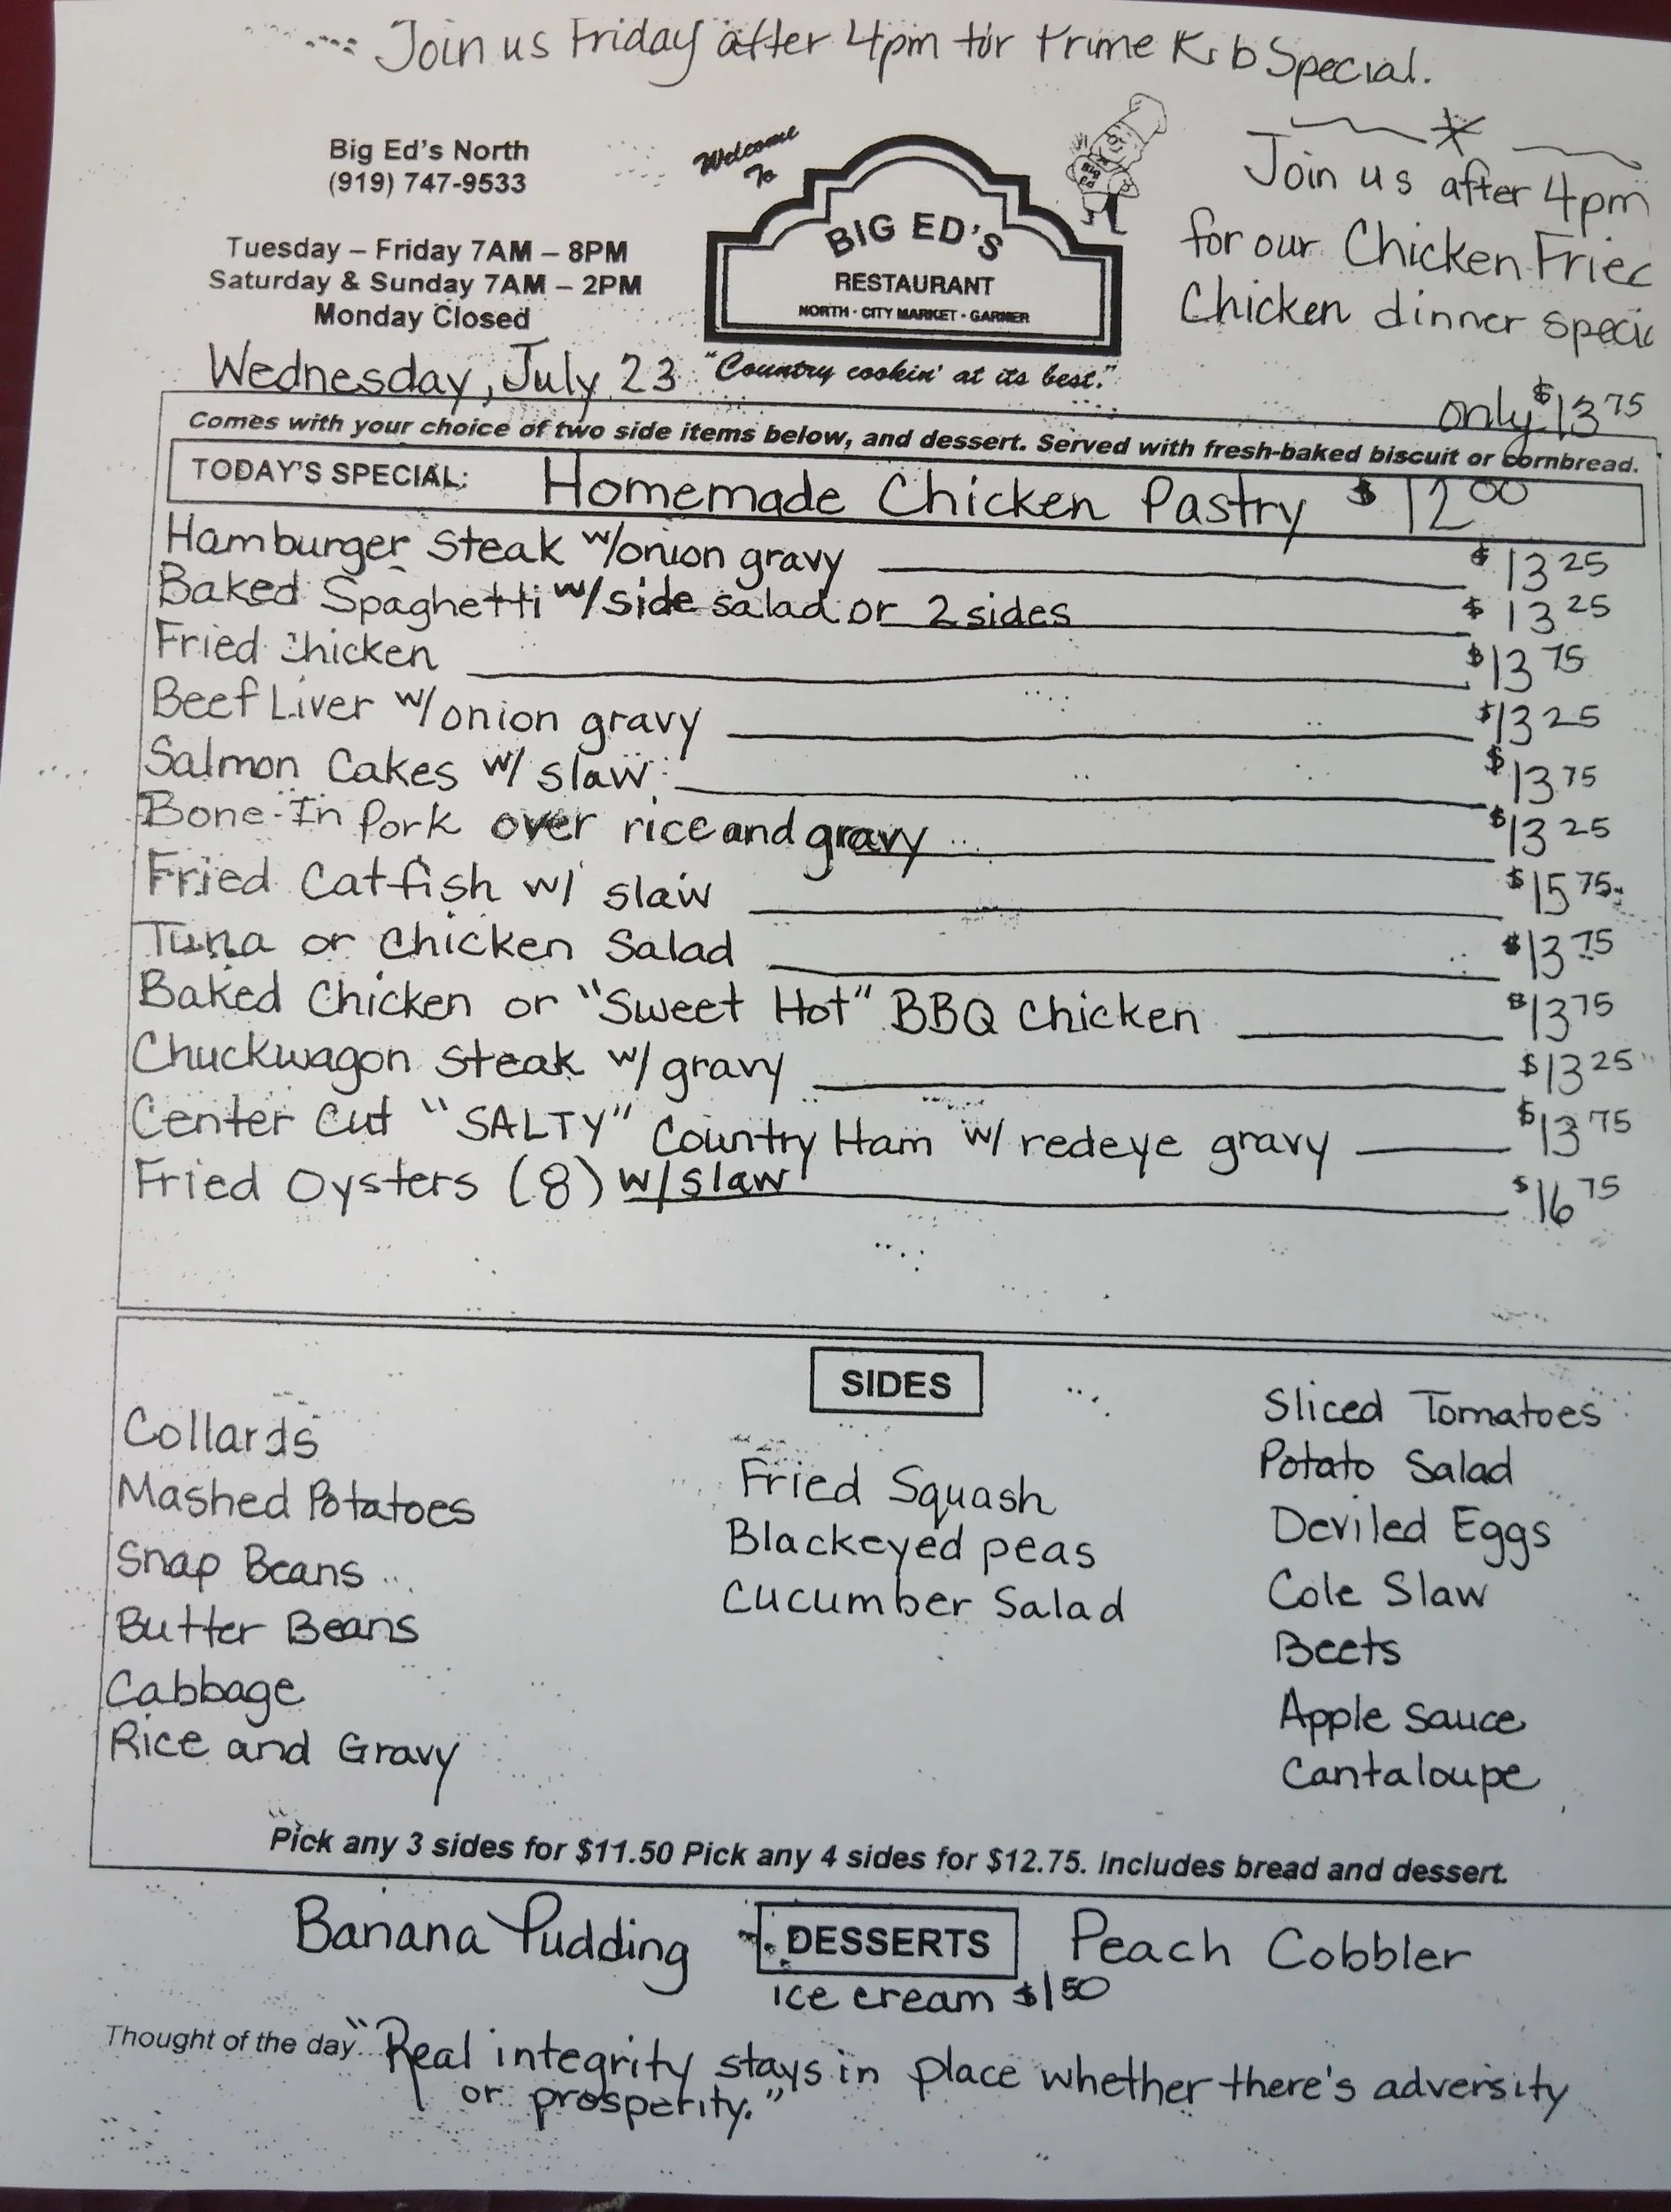 Join us Friday after 4pm for Prime Rib Special.
Big Ed's North
(919) 747-9533
Tuesday – Friday 7AM – 8PM
Saturday & Sunday 7AM – 2PM
Monday Closed
Welcome
To
BIG ED
BIG ED'S
RESTAURANT
NORTH · CITY MARKET · GARNER
"Country cookin' at its best."
Join us after 4pm
for our Chicken Fried
Chicken dinner specia
only $13 75
Wednesday, July 23
Comes with your choice of two side items below, and dessert. Served with fresh-baked biscuit or cornbread.
TODAY'S SPECIAL: Homemade Chicken Pastry $12 00
Hamburger Steak w/onion gravy $13 25
Baked Spaghetti w/side salad or 2 sides $13 25
Fried Chicken $13 75
Beef Liver w/onion gravy $13 25
Salmon Cakes w/ slaw $13 75
Bone-In Pork over rice and gravy $13 25
Fried Catfish w/ slaw $15 75
Tuna or Chicken Salad $13 75
Baked Chicken or "Sweet Hot" BBQ Chicken $13 75
Chuckwagon Steak w/ gravy $13 25
Center Cut "SALTY" Country Ham w/ redeye gravy $13 75
Fried Oysters (8) w/slaw $16 75
SIDES
Collards
Mashed Potatoes
Snap Beans
Butter Beans
Cabbage
Rice and Gravy
Fried Squash
Blackeyed peas
Cucumber Salad
Sliced Tomatoes
Potato Salad
Deviled Eggs
Cole Slaw
Beets
Apple Sauce
Cantaloupe
Pick any 3 sides for $11.50 Pick any 4 sides for $12.75. Includes bread and dessert.
Banana Pudding DESSERTS Peach Cobbler
ice cream $1 50
Thought of the day: "Real integrity stays in place whether there's adversity
or prosperity."